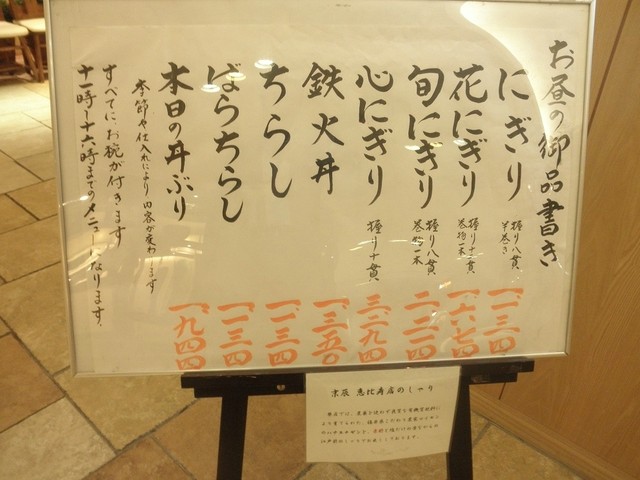 お昼の御品書き
にぎり 握り八貫、半巻き 一、一三四
花にぎり 握り十貫、巻物一本 一、六七四
旬にぎり 握り八貫 巻物一本 二、二一四
心にぎり 握り十貫 三、二九四
鉄火丼 一、三五〇
ちらし 一、一三四
ばらちらし 一、一三四
本日の丼ぶり 一、九四四
季節や仕入れにより内容が変わります
すべてに、お椀が付きます
十一時〜十六時までのメニューになります。
京辰 恵比寿店のしゃり